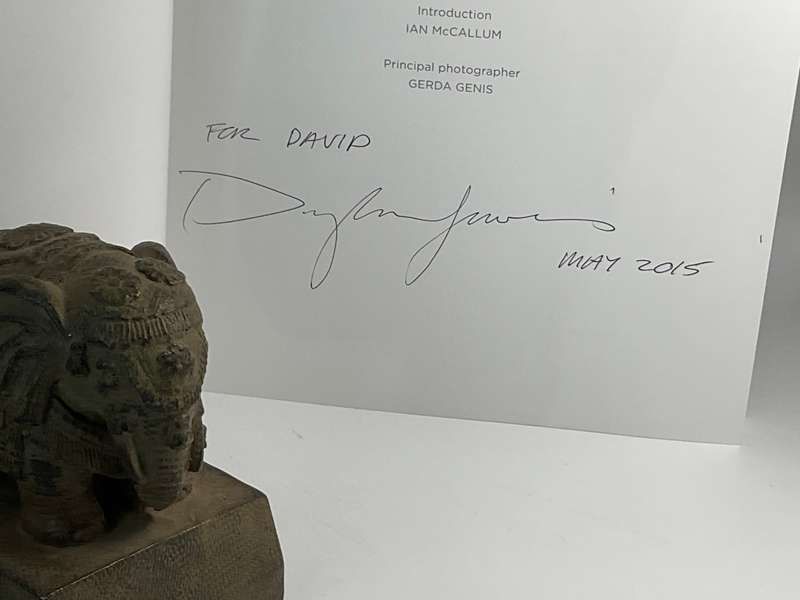 Introduction
IAN McCALLUM
Principal photographer
GERDA GENIS
FOR DAVID
Dylan Lewis
MAY 2015